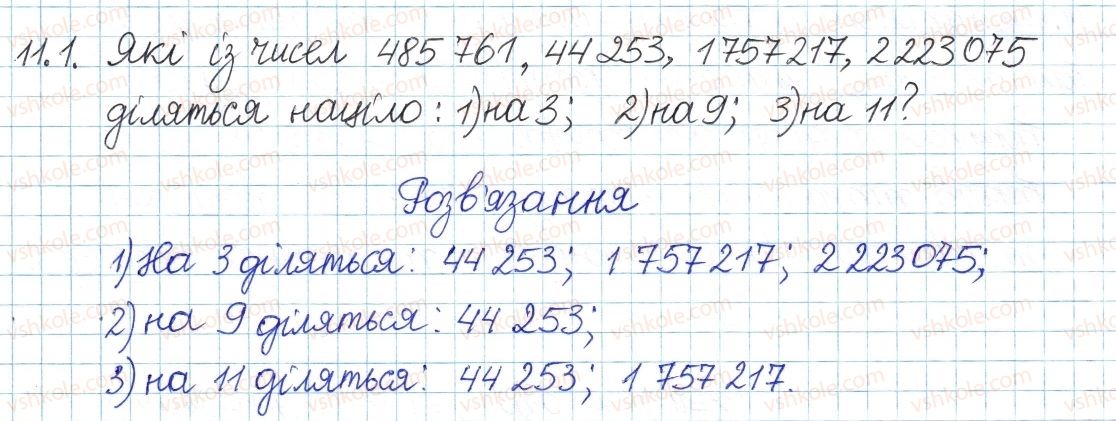 11.1. Які із чисел 485 761, 44 253, 1 757 217, 2 223 075
діляться націло: 1) на 3; 2) на 9; 3) на 11?
Розв'язання
1) На 3 діляться: 44 253; 1 757 217; 2 223 075;
2) на 9 діляться: 44 253;
3) на 11 діляться: 44 253; 1 757 217.